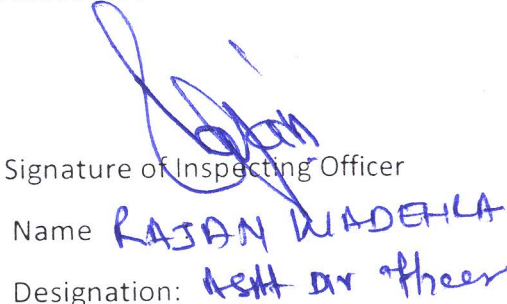 Rajan
Signature of Inspecting Officer
Name RAJAN WADEHRA
Designation: Asstt Div Officer